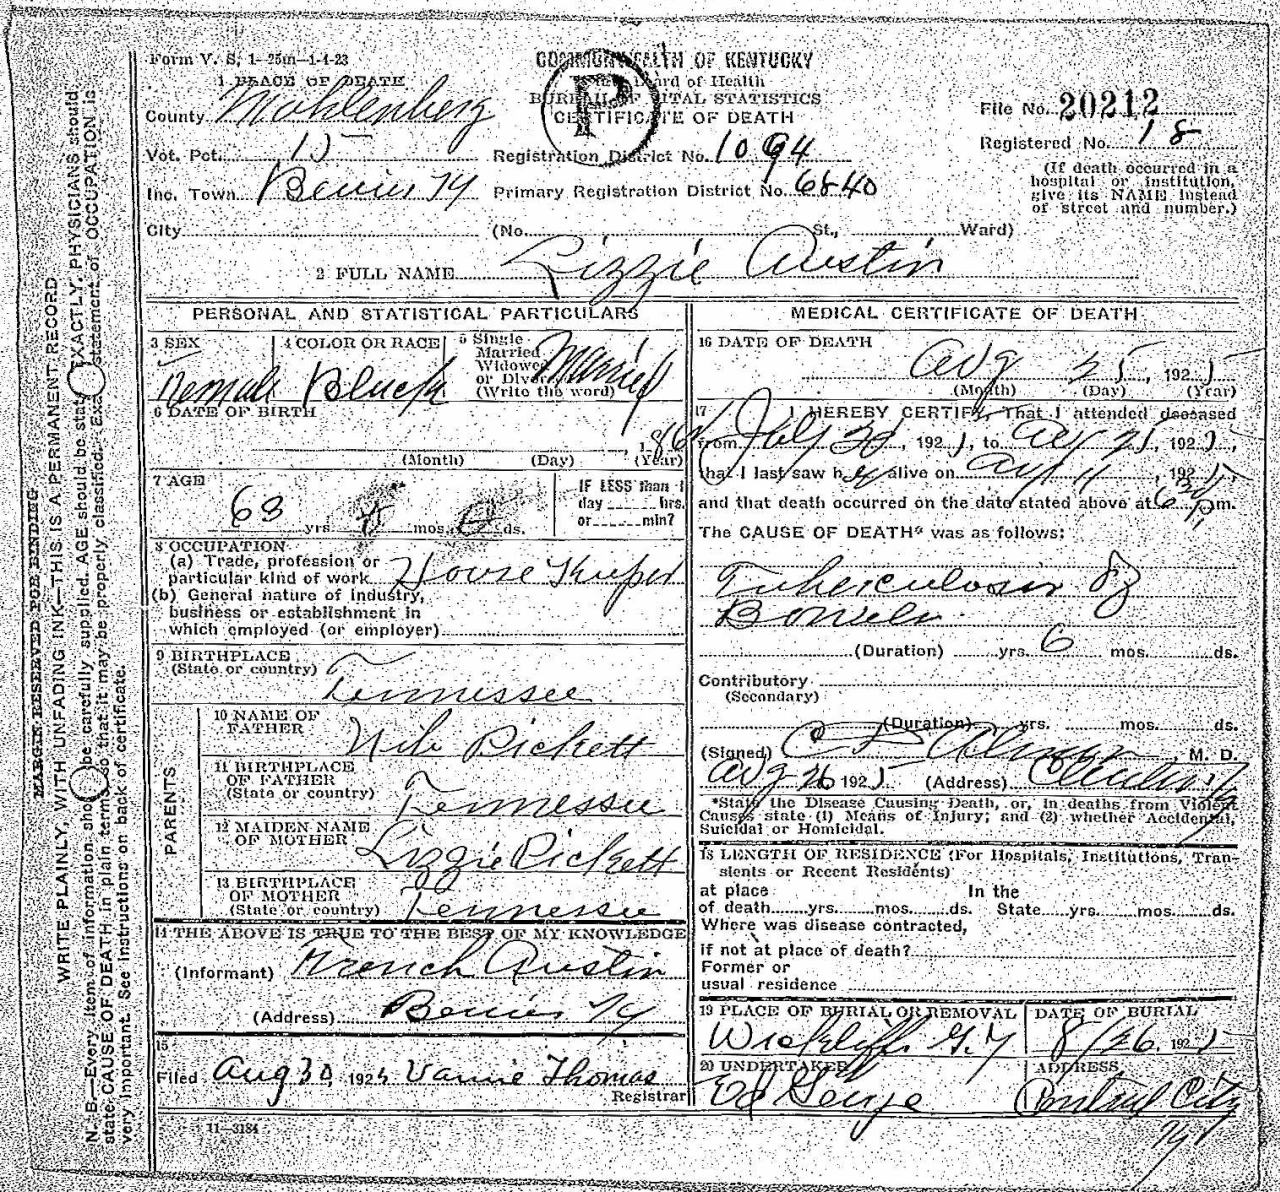 Form V. S. 1-25m-1-4-23
COMMONWEALTH OF KENTUCKY
Board of Health
BUREAU OF VITAL STATISTICS
CERTIFICATE OF DEATH
P
File No. 20212
Registered No. 18
(If death occurred in a
hospital or institution,
give its NAME instead
of street and number.)
1 PLACE OF DEATH
County Muhlenberg
Vot. Pct. 15
Registration District No. 1094
Inc. Town Bevier Ky
Primary Registration District No. 6840
City (No. St., Ward)
2 FULL NAME Lizzie Austin
PERSONAL AND STATISTICAL PARTICULARS
3 SEX
Female
4 COLOR OR RACE
Black
5 Single
Married
Widowed
or Divorced
(Write the word)
Married
6 DATE OF BIRTH
(Month) (Day) (Year)
7 AGE
63 yrs. mos. ds.
IF LESS than 1
day hrs.
or min?
8 OCCUPATION
(a) Trade, profession or
particular kind of work House Keeper
(b) General nature of Industry,
business or establishment in
which employed (or employer)
9 BIRTHPLACE
(State or country) Tennessee
PARENTS
10 NAME OF
FATHER Pickett
11 BIRTHPLACE
OF FATHER
(State or country) Tennessee
12 MAIDEN NAME
OF MOTHER Lizzie Pickett
13 BIRTHPLACE
OF MOTHER
(State or country) Tennessee
14 THE ABOVE IS TRUE TO THE BEST OF MY KNOWLEDGE
(Informant) French Austin
(Address) Bevier Ky
15
Filed Aug 30, 1925 Vannie Thomas
Registrar
11-3184
MEDICAL CERTIFICATE OF DEATH
16 DATE OF DEATH
Aug 25, 1925
(Month) (Day) (Year)
17 I HEREBY CERTIFY, That I attended deceased
from July 20, 1925, to Aug 25, 1925,
that I last saw her alive on Aug 11 1925
and that death occurred on the date stated above at 6 30 P.m.
The CAUSE OF DEATH* was as follows:
Tuberculosis of
Bowels
(Duration) yrs. 6 mos. ds.
Contributory
(Secondary)
(Duration) yrs. mos. ds.
(Signed) M. D.
Aug 26 1925 (Address)
*State the Disease Causing Death, or, in deaths from Violent
Causes state (1) Means of Injury; and (2) whether Accidental,
Suicidal or Homicidal.
18 LENGTH OF RESIDENCE (For Hospitals, Institutions, Tran-
sients or Recent Residents)
at place In the
of death yrs. mos. ds. State yrs. mos. ds.
Where was disease contracted,
if not at place of death?
Former or
usual residence
19 PLACE OF BURIAL OR REMOVAL
Wickliffe G. Y
DATE OF BURIAL
8/26, 1925
20 UNDERTAKER
Ed
ADDRESS
Central City
Ky
MARGIN RESERVED FOR BINDING
WRITE PLAINLY, WITH UNFADING INK—THIS IS A PERMANENT RECORD
N. B.—Every item of information should be carefully supplied. AGE should be stated EXACTLY. PHYSICIANS should
state CAUSE OF DEATH in plain terms, so that it may be properly classified. Exact statement of OCCUPATION is
very important. See instructions on back of certificate.